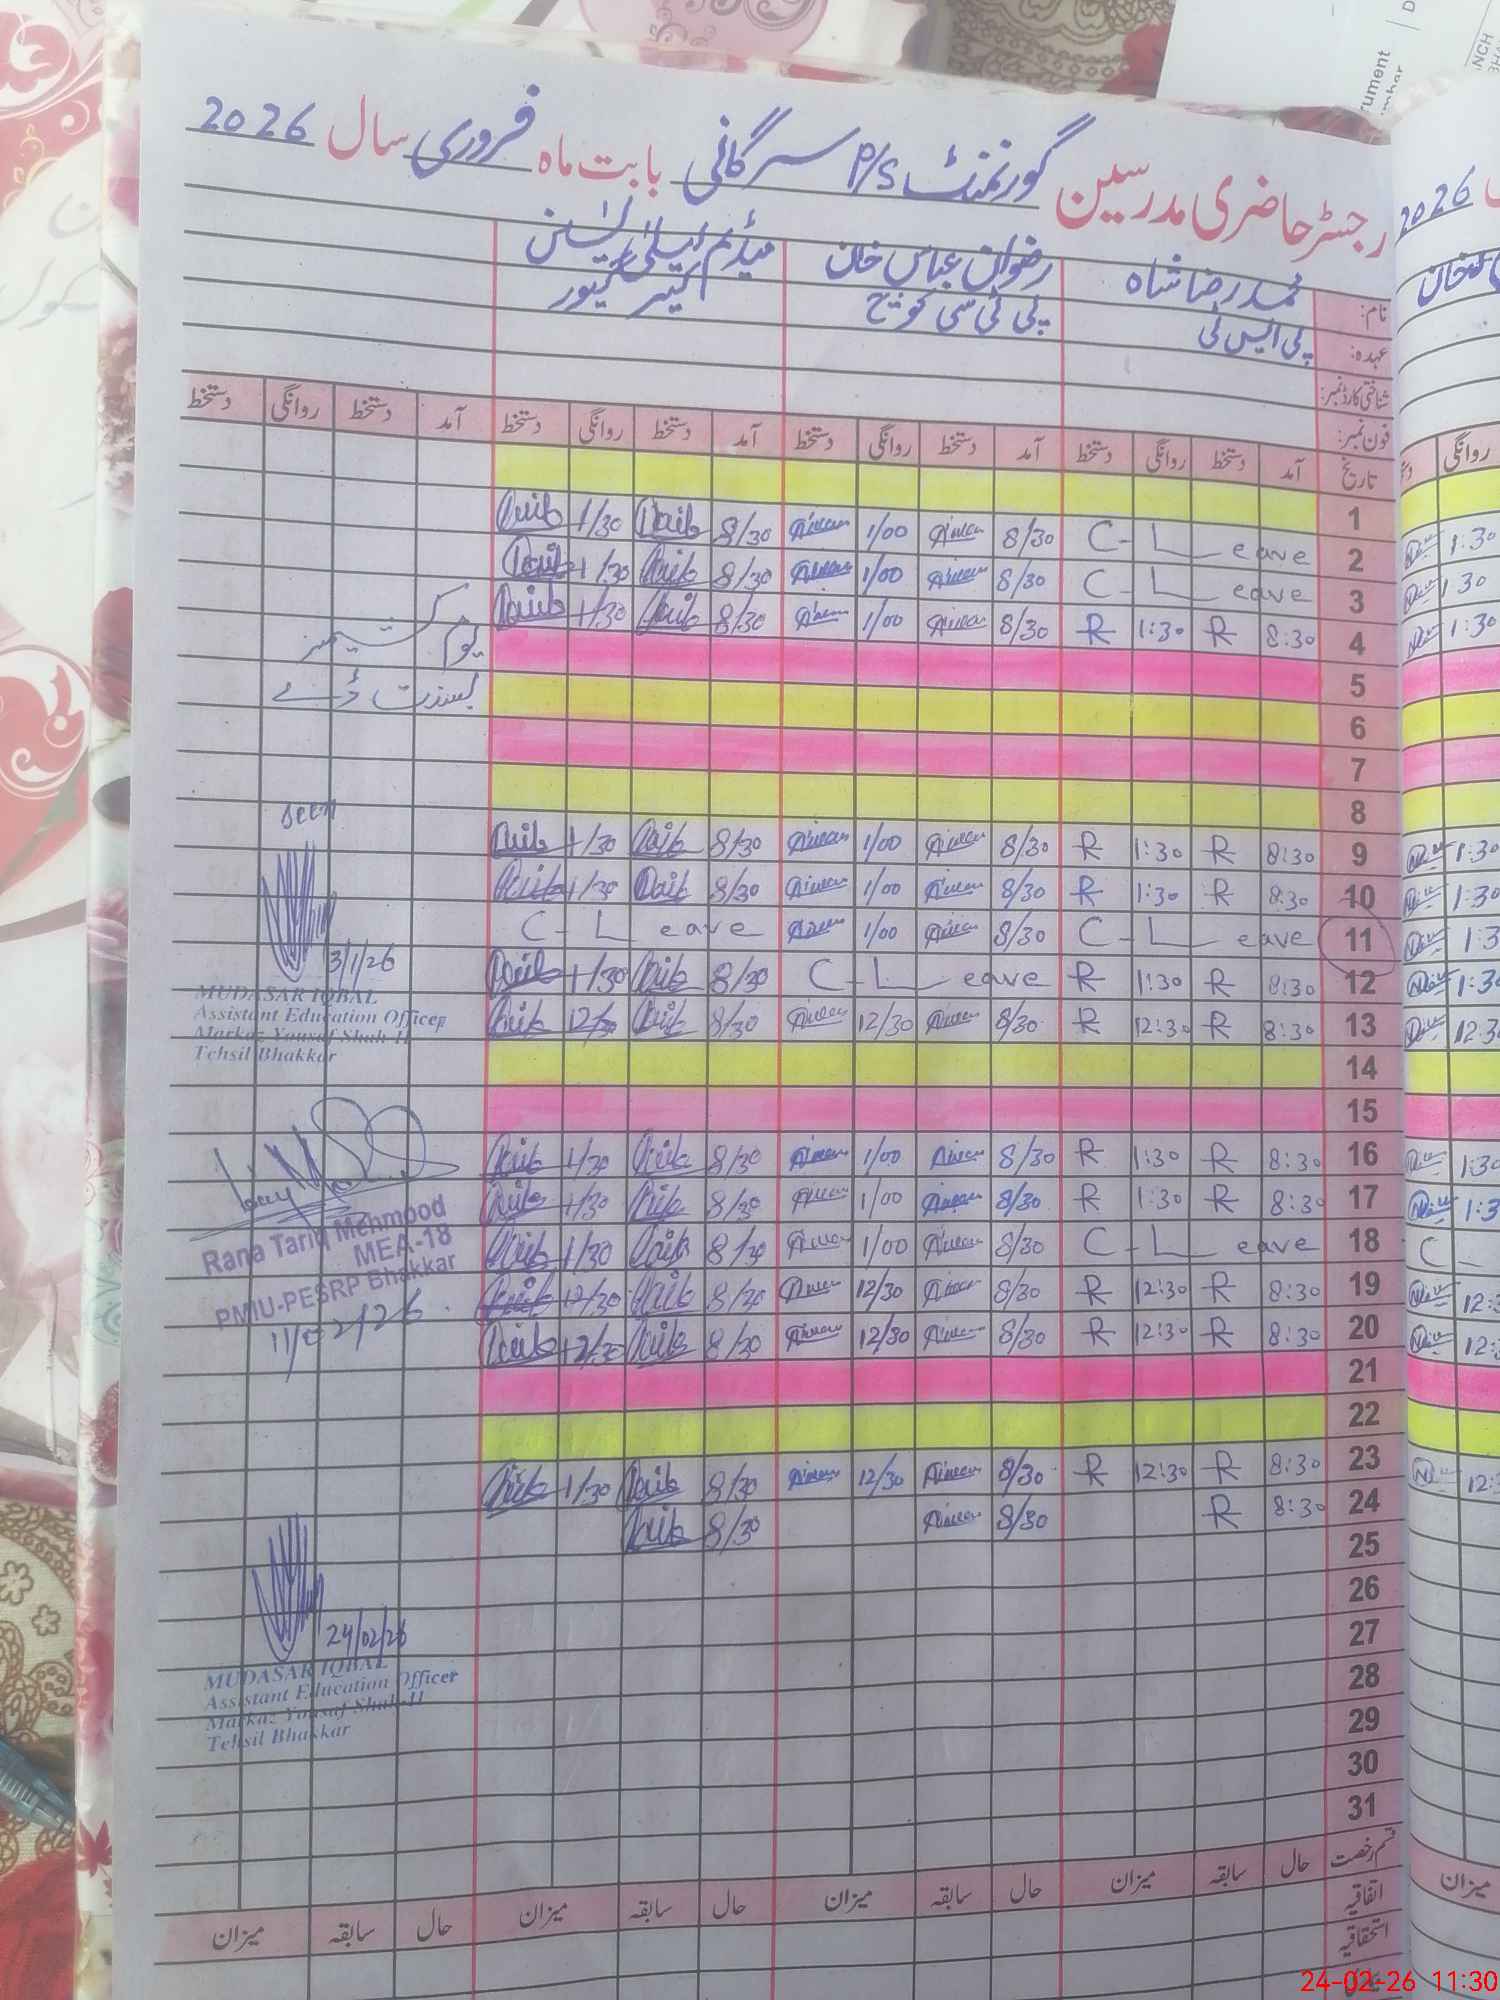 رجسٹر حاضری مدرسین گورنمنٹ P/S سرگانی بابت ماہ فروری سال 2026
نام: محمد رضا شاہ رضوان عباس خان میڈم لیلیٰ
عہدہ: پی ایس ٹی پی ٹی سی کوچ کیئر گیور
شناختی کارڈ نمبر:
فون نمبر:
تاریخ آمد دستخط روانگی دستخط آمد دستخط روانگی دستخط آمد دستخط روانگی دستخط آمد دستخط روانگی دستخط
1
2 C-Leave 8/30 1/00 8/30 1/30
3 C-Leave 8/30 1/00 8/30 1/30
4 8:30 R 1:30 R 8/30 1/00 8/30 1/30
5 یوم کشمیر
6 بسنت ڈے
7
8
9 8:30 R 1:30 R 8/30 1/00 8/30 1/30
10 8:30 R 1:30 R 8/30 1/00 8/30 1/30
11 C-Leave 8/30 1/00 C-Leave
12 8:30 R 1:30 R C-Leave 8/30 1/30
13 8:30 R 12:30 R 8/30 12/30 8/30 12/30
14
15
16 8:30 R 1:30 R 8/30 1/00 8/30 1/30
17 8:30 R 1:30 R 8/30 1/00 8/30 1/30
18 C-Leave 8/30 1/00 8/30 1/30
19 8:30 R 12:30 R 8/30 12/30 8/30 12/30
20 8:30 R 12:30 R 8/30 12/30 8/30 12/30
21
22
23 8:30 R 12:30 R 8/30 12/30 8/30 1/30
24 8:30 R 8/30 8/30
25
26
27
28
29
30
31
قسم رخصت حال سابقہ میزان حال سابقہ میزان حال سابقہ میزان حال سابقہ میزان
اتفاقیہ
استحقاقیہ
seen
3/1/26
MUDASAR IQBAL
Assistant Education Officer
Markaz Yousaf Shah-II
Tehsil Bhakkar
Rana Tariq Mehmood
MEA-18
PMIU-PESRP Bhakkar
11/02/26
24/02/26
MUDASAR IQBAL
Assistant Education Officer
Markaz Yousaf Shah-II
Tehsil Bhakkar
2026
روانگی
1:30
1:30
1:30
1:30
1:30
میزان
24-02-26 11:30